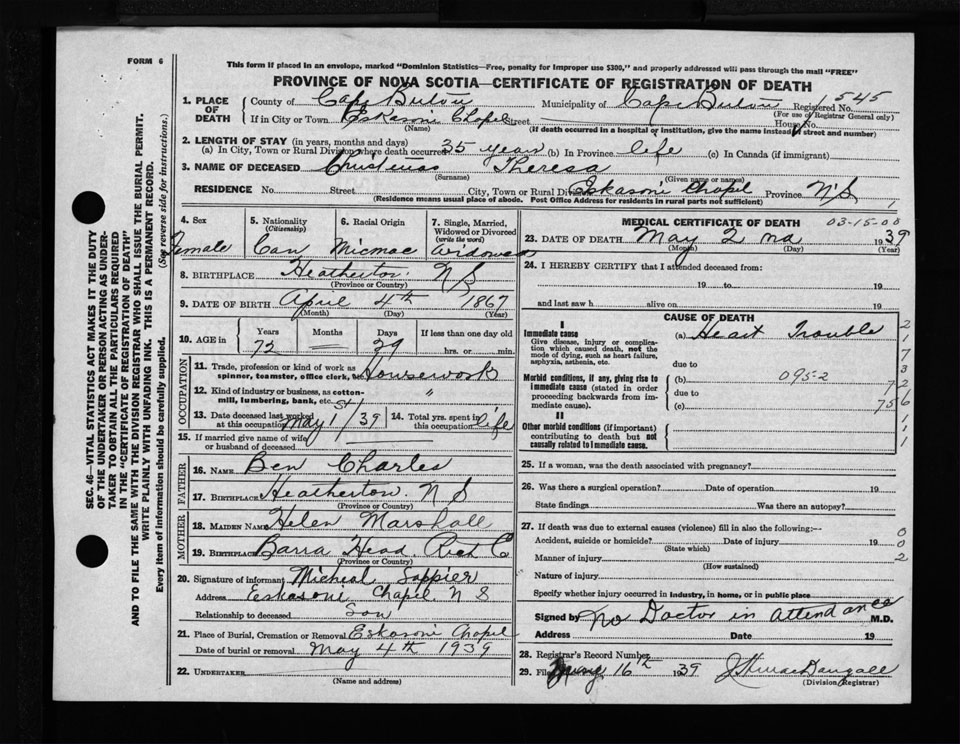 FORM 6
This form if placed in an envelope, marked "Dominion Statistics—Free, penalty for improper use $300," and properly addressed will pass through the mail "FREE"
PROVINCE OF NOVA SCOTIA—CERTIFICATE OF REGISTRATION OF DEATH
1. PLACE OF DEATH
County of Cape Breton Municipality of Cape Breton Registered No. 1545
(For use of Registrar General only)
If in City or Town Eskasoni Chapel Street House No.
(Name) (If death occurred in a hospital or institution, give the name instead of street and number)
2. LENGTH OF STAY (in years, months and days)
(a) In City, Town or Rural Division where death occurred 35 years (b) In Province life (c) In Canada (if immigrant)
3. NAME OF DECEASED Christmas Theresa
(Surname) (Given name or names)
RESIDENCE No. Street City, Town or Rural Div. Eskasoni Chapel Province N.S
(Residence means usual place of abode. Post Office Address for residents in rural parts not sufficient)
4. Sex 5. Nationality (Citizenship) 6. Racial Origin 7. Single, Married, Widowed or Divorced (write the word)
Female Can Micmac Widowed
8. BIRTHPLACE Heatherton N S
(Province or County)
9. DATE OF BIRTH April 4th 1867
(Month) (Day) (Year)
10. AGE in Years Months Days If less than one day old
72 29 hrs. or min.
OCCUPATION
11. Trade, profession or kind of work as spinner, teamster, office clerk, etc. Housework
12. Kind of industry or business, as cotton-mill, lumbering, bank, etc. "
13. Date deceased last worked at this occupation May 1st/39 14. Total yrs. spent in this occupation life
15. If married give name of wife or husband of deceased
FATHER
16. NAME Ben Charles
17. BIRTHPLACE Heatherton. N S
(Province or County)
MOTHER
18. MAIDEN NAME Helen Marshall
19. BIRTHPLACE Barra Head Rich C
(Province or County)
20. Signature of informant Micheal Sappier
Address Eskasoni Chapel. N S
Relationship to deceased Son
21. Place of Burial, Cremation or Removal Eskasoni Chapel
Date of burial or removal May 4th 1939
22. UNDERTAKER
(Name and address)
MEDICAL CERTIFICATE OF DEATH 03-15-00
23. DATE OF DEATH May 2nd 1939
(Month) (Day) (Year)
24. I HEREBY CERTIFY that I attended deceased from:
19 to 19
and last saw h alive on 19
CAUSE OF DEATH
I
Immediate cause (a) Heart Trouble
Give disease, injury or complication which caused death, not the mode of dying, such as heart failure, asphyxia, asthenia, etc.
due to
Morbid conditions, if any, giving rise to immediate cause (stated in order proceeding backwards from immediate cause).
(b) 095-2
due to
(c) 756
II
Other morbid conditions (if important) contributing to death but not causally related to immediate cause.
25. If a woman, was the death associated with pregnancy?
26. Was there a surgical operation? Date of operation 19
State findings Was there an autopsy?
27. If death was due to external causes (violence) fill in also the following:—
Accident, suicide or homicide? Date of injury 19
(State which)
Manner of injury
(How sustained)
Nature of injury
Specify whether injury occurred in industry, in home, or in public place
Signed by No Doctor in Attendance M.D.
Address Date 19
28. Registrar's Record Number
29. Filed May 16th 1939
(Division Registrar)
SEC. 46—VITAL STATISTICS ACT MAKES IT THE DUTY
OF THE UNDERTAKER OR PERSON ACTING AS UNDER-
TAKER TO OBTAIN ALL THE PARTICULARS REQUIRED
IN THE "CERTIFICATE OF REGISTRATION OF DEATH"
AND TO FILE THE SAME WITH THE DIVISION REGISTRAR WHO SHALL ISSUE THE BURIAL PERMIT.
WRITE PLAINLY WITH UNFADING INK. THIS IS A PERMANENT RECORD.
Every item of information should be carefully supplied. (See reverse side for instructions.)